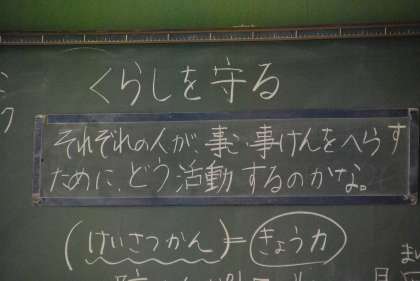 くらしを守る
それぞれの人が、事こ・事けんをへらす
ために、どう活動するのかな。
(けいさつかん)=きょう力